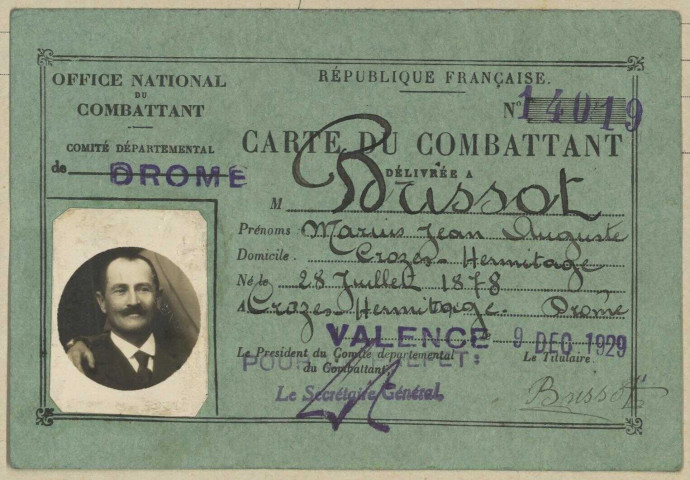 OFFICE NATIONAL
DU
COMBATTANT
COMITÉ DÉPARTEMENTAL
de DROME
RÉPUBLIQUE FRANÇAISE.
N° 14019
CARTE DU COMBATTANT
DÉLIVRÉE A
M Brissot
Prénoms Marius Jean Auguste
Domicile. Crozes-Hermitage
Né le 28 Juillet 1878
A Crozes-Hermitage. Drôme
VALENCE le 9 DEC. 1929
Le Président du Comité départemental
du Combattant
POUR
Le Secrétaire Général,
Le Titulaire
Brissot